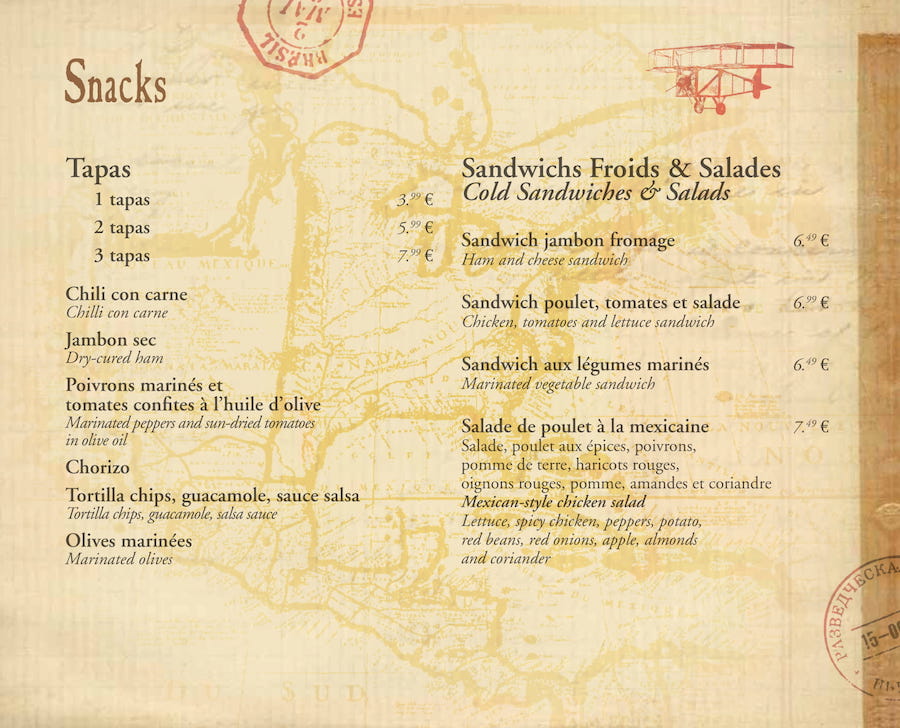 BRESIL
2
MAI
ES
Snacks
Tapas
1 tapas 3.99 €
2 tapas 5.99 €
3 tapas 7.99 €
Chili con carne
Chilli con carne
Jambon sec
Dry-cured ham
Poivrons marinés et
tomates confites à l'huile d'olive
Marinated peppers and sun-dried tomatoes
in olive oil
Chorizo
Tortilla chips, guacamole, sauce salsa
Tortilla chips, guacamole, salsa sauce
Olives marinées
Marinated olives
Sandwichs Froids & Salades
Cold Sandwiches & Salads
Sandwich jambon fromage 6.49 €
Ham and cheese sandwich
Sandwich poulet, tomates et salade 6.99 €
Chicken, tomatoes and lettuce sandwich
Sandwich aux légumes marinés 6.49 €
Marinated vegetable sandwich
Salade de poulet à la mexicaine 7.49 €
Salade, poulet aux épices, poivrons,
pomme de terre, haricots rouges,
oignons rouges, pomme, amandes et coriandre
Mexican-style chicken salad
Lettuce, spicy chicken, peppers, potato,
red beans, red onions, apple, almonds
and coriander
РАЗВЕДЧЕСКА
15-0
SUD